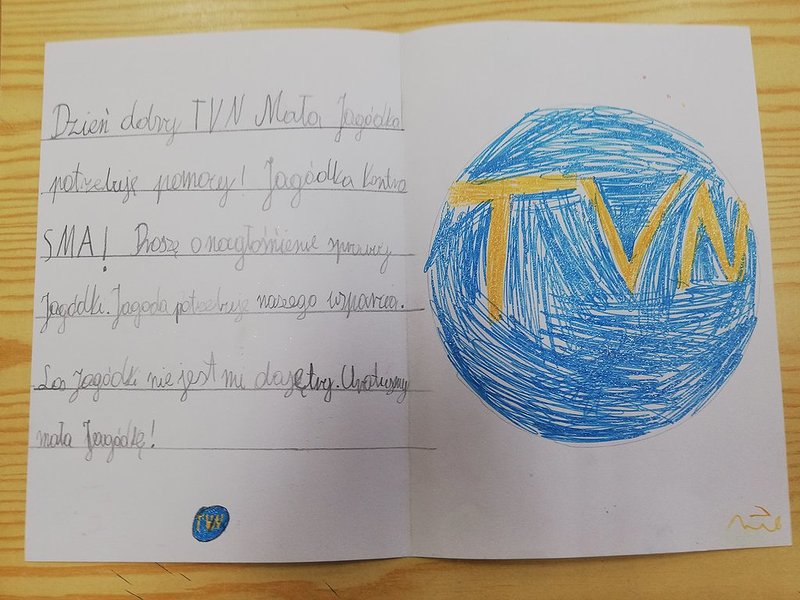 Dzień dobry TVN Mała Jagódka
potrzebuję pomocy! Jagódka Kontra
SMA! Proszę o nagłośnienie sprawy
Jagódki. Jagoda potrzebuje naszego wsparcia.
Los Jagódki nie jest mi Uratujmy
mała Jagódkę!
TVN
TVN